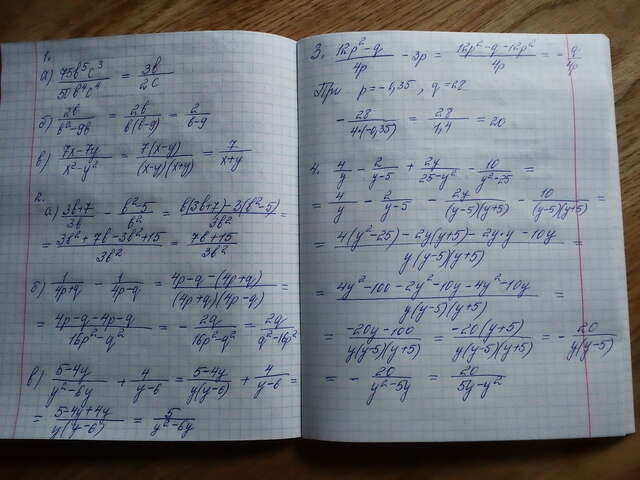 1.
а) 75b⁵c³/50b⁴c⁴ = 3b/2c
б) 2b/(b²-9b) = 2b/(b(b-9)) = 2/(b-9)
в) (7x-7y)/(x²-y²) = 7(x-y)/((x-y)(x+y)) = 7/(x+y)
2.
а) (3b+7)/3b - (b²-5)/b² = (b(3b+7)-3(b²-5))/3b² =
= (3b²+7b-3b²+15)/3b² = (7b+15)/3b²
б) 1/(4p+q) - 1/(4p-q) = (4p-q-(4p+q))/((4p+q)(4p-q)) =
= (4p-q-4p-q)/(16p²-q²) = - 2q/(16p²-q²) = 2q/(q²-16p²)
в) (5-4y)/(y²-6y) + 4/(y-6) = (5-4y)/(y(y-6)) + 4/(y-6) =
= (5-4y+4y)/(y(y-6)) = 5/(y²-6y)
3. (12p²-q)/4p - 3p = (12p²-q-12p²)/4p = - q/4p
При p=-0,35, q=28
- 28/(4·(-0,35)) = 28/1,4 = 20
4. 4/y - 2/(y-5) + 2y/(25-y²) - 10/(y²-25) =
= 4/y - 2/(y-5) - 2y/((y-5)(y+5)) - 10/((y-5)(y+5)) =
= (4(y²-25)-2y(y+5)-2y·y-10y)/(y(y-5)(y+5)) =
= (4y²-100-2y²-10y-4y²-10y)/(y(y-5)(y+5)) =
= (-20y-100)/(y(y-5)(y+5)) = -20(y+5)/(y(y-5)(y+5)) = - 20/(y(y-5))
= - 20/(y²-5y) = 20/(5y-y²)